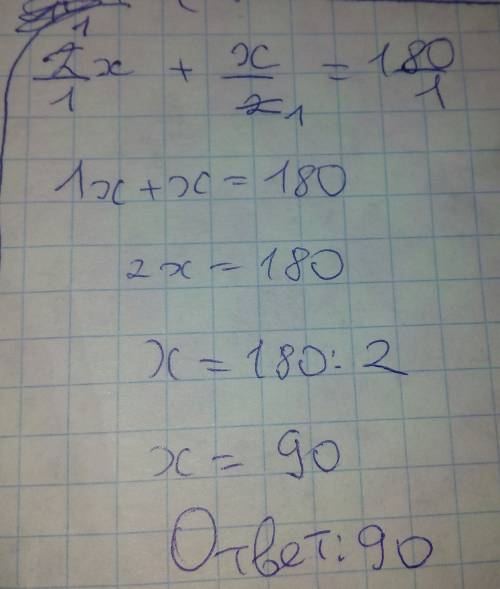 2̶ 1/1 x + x/2̶ 1 = 180/1
1x + x = 180
2x = 180
x = 180 : 2
x = 90
Ответ: 90